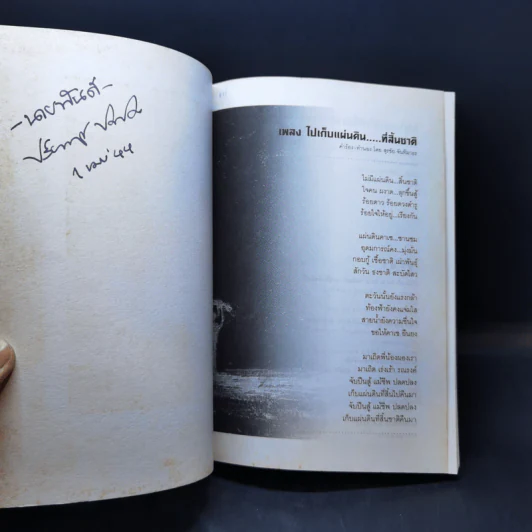 -นายพันดี-
๑ เมย ๔๔
เพลง ไปเก็บแผ่นดิน.....ที่สิ้นชาติ
คำร้อง : ทำนอง โดย
ไม่มีแผ่นดิน...สิ้นชาติ
ร้อยดาว ร้อยดวง
ร้อยใจให้อยู่...เรียงกัน
แผ่นดินคาเซ...ชานชม
อุดมการณ์คง...มุ่งมั่น
กอบกู้ เชื้อชาติ เผ่าพันธุ์
สักวัน ธงชาติ สะบัดไสว
ตะวันนั้นยังแรงกล้า
ท้องฟ้ายังคงแจ่มใส
สายน้ำยังความชื่นใจ
ขอให้คาเซ ยืนยง
มาเถิดพี่น้องผองเรา
มาเถิด เร่งเร้า รณรงค์
จับปืนสู้ แม้ชีพ ปลดปลง
เก็บแผ่นดินที่สิ้นไปคืนมา
จับปืนสู้ แม้ชีพ ปลดปลง
เก็บแผ่นดินที่สิ้นชาติคืนมา